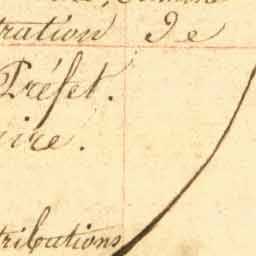 tration De
Préfet.
ire.
tributions